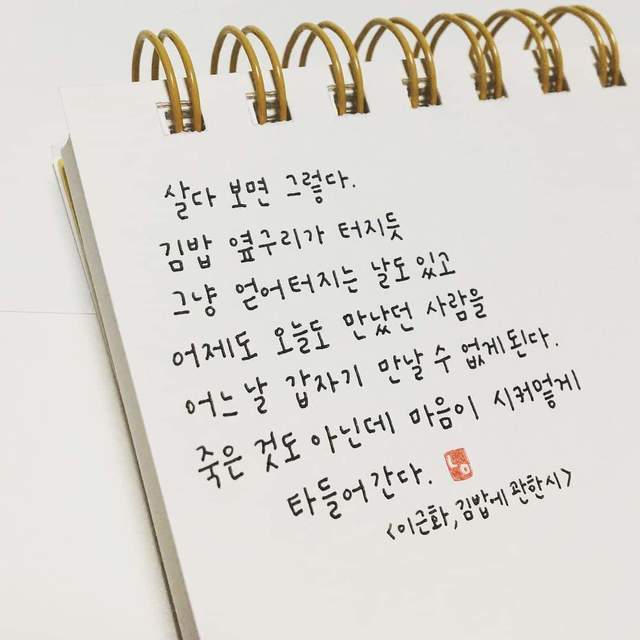 살다 보면 그렇다.
김밥 옆구리가 터지듯
그냥 얻어터지는 날도 있고
어제도 오늘도 만났던 사람을
어느날 갑자기 만날 수 없게 된다.
죽은 것도 아닌데 마음이 시커멓게
타들어 간다.
<이근화, 김밥에 관한 시>